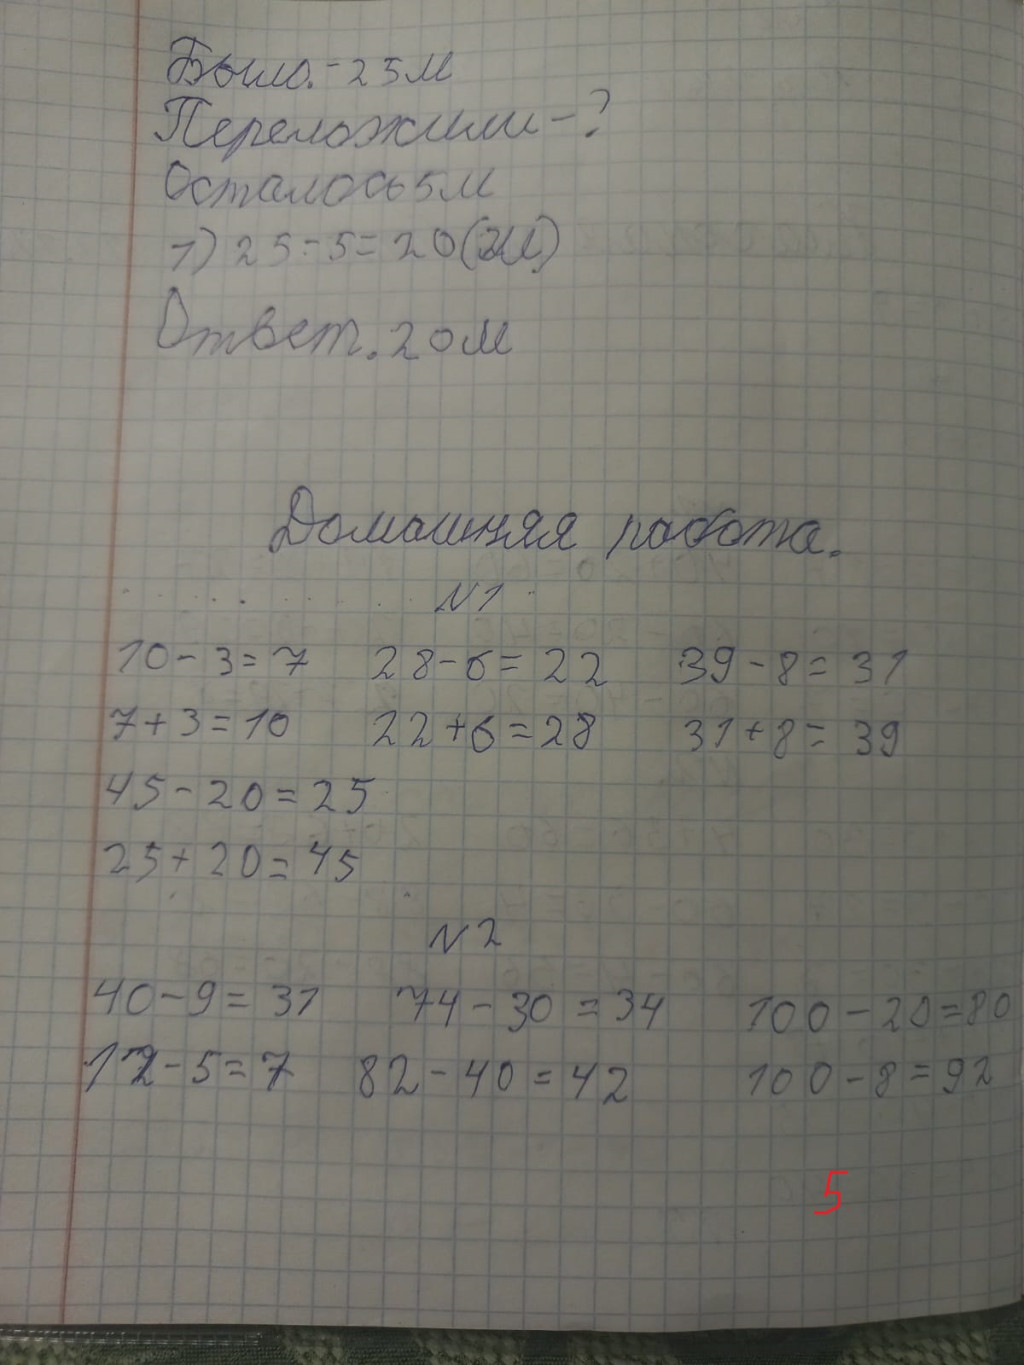 Было.-25м
Переложили-?
Осталось5м
1) 25-5=20(м)
Ответ.20м
Домашняя работа.
N1
10-3=7 28-6=22 39-8=31
7+3=10 22+6=28 31+8=39
45-20=25
25+20=45
N2
40-9=31 74-30=34 100-20=80
12-5=7 82-40=42 100-8=92
5